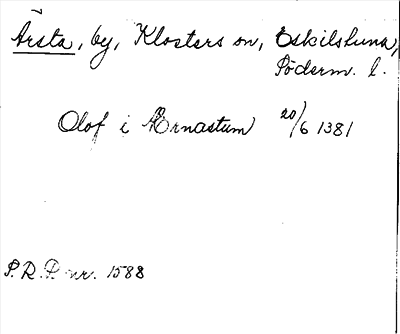 Årsta, by, Klosters sn, Eskilstuna,
Söderm. l.
Olof i Ærnastum 20/6 1381
S.R.P. nr. 1588